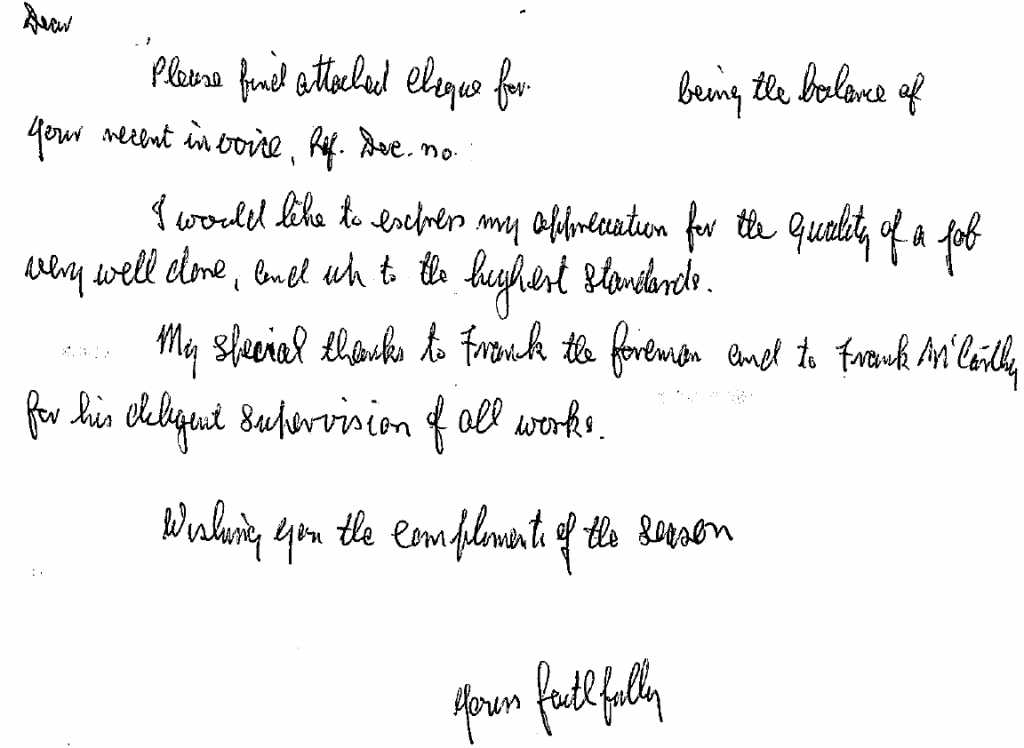 Dear
Please find attached cheque for being the balance of
your recent invoice, Ref. Doc. no.
I would like to express my appreciation for the quality of a job
very well done, and up to the highest standards.
My special thanks to Frank the foreman and to Frank McCarthy
for his diligent supervision of all works.
Wishing you the compliments of the season
Yours faithfully